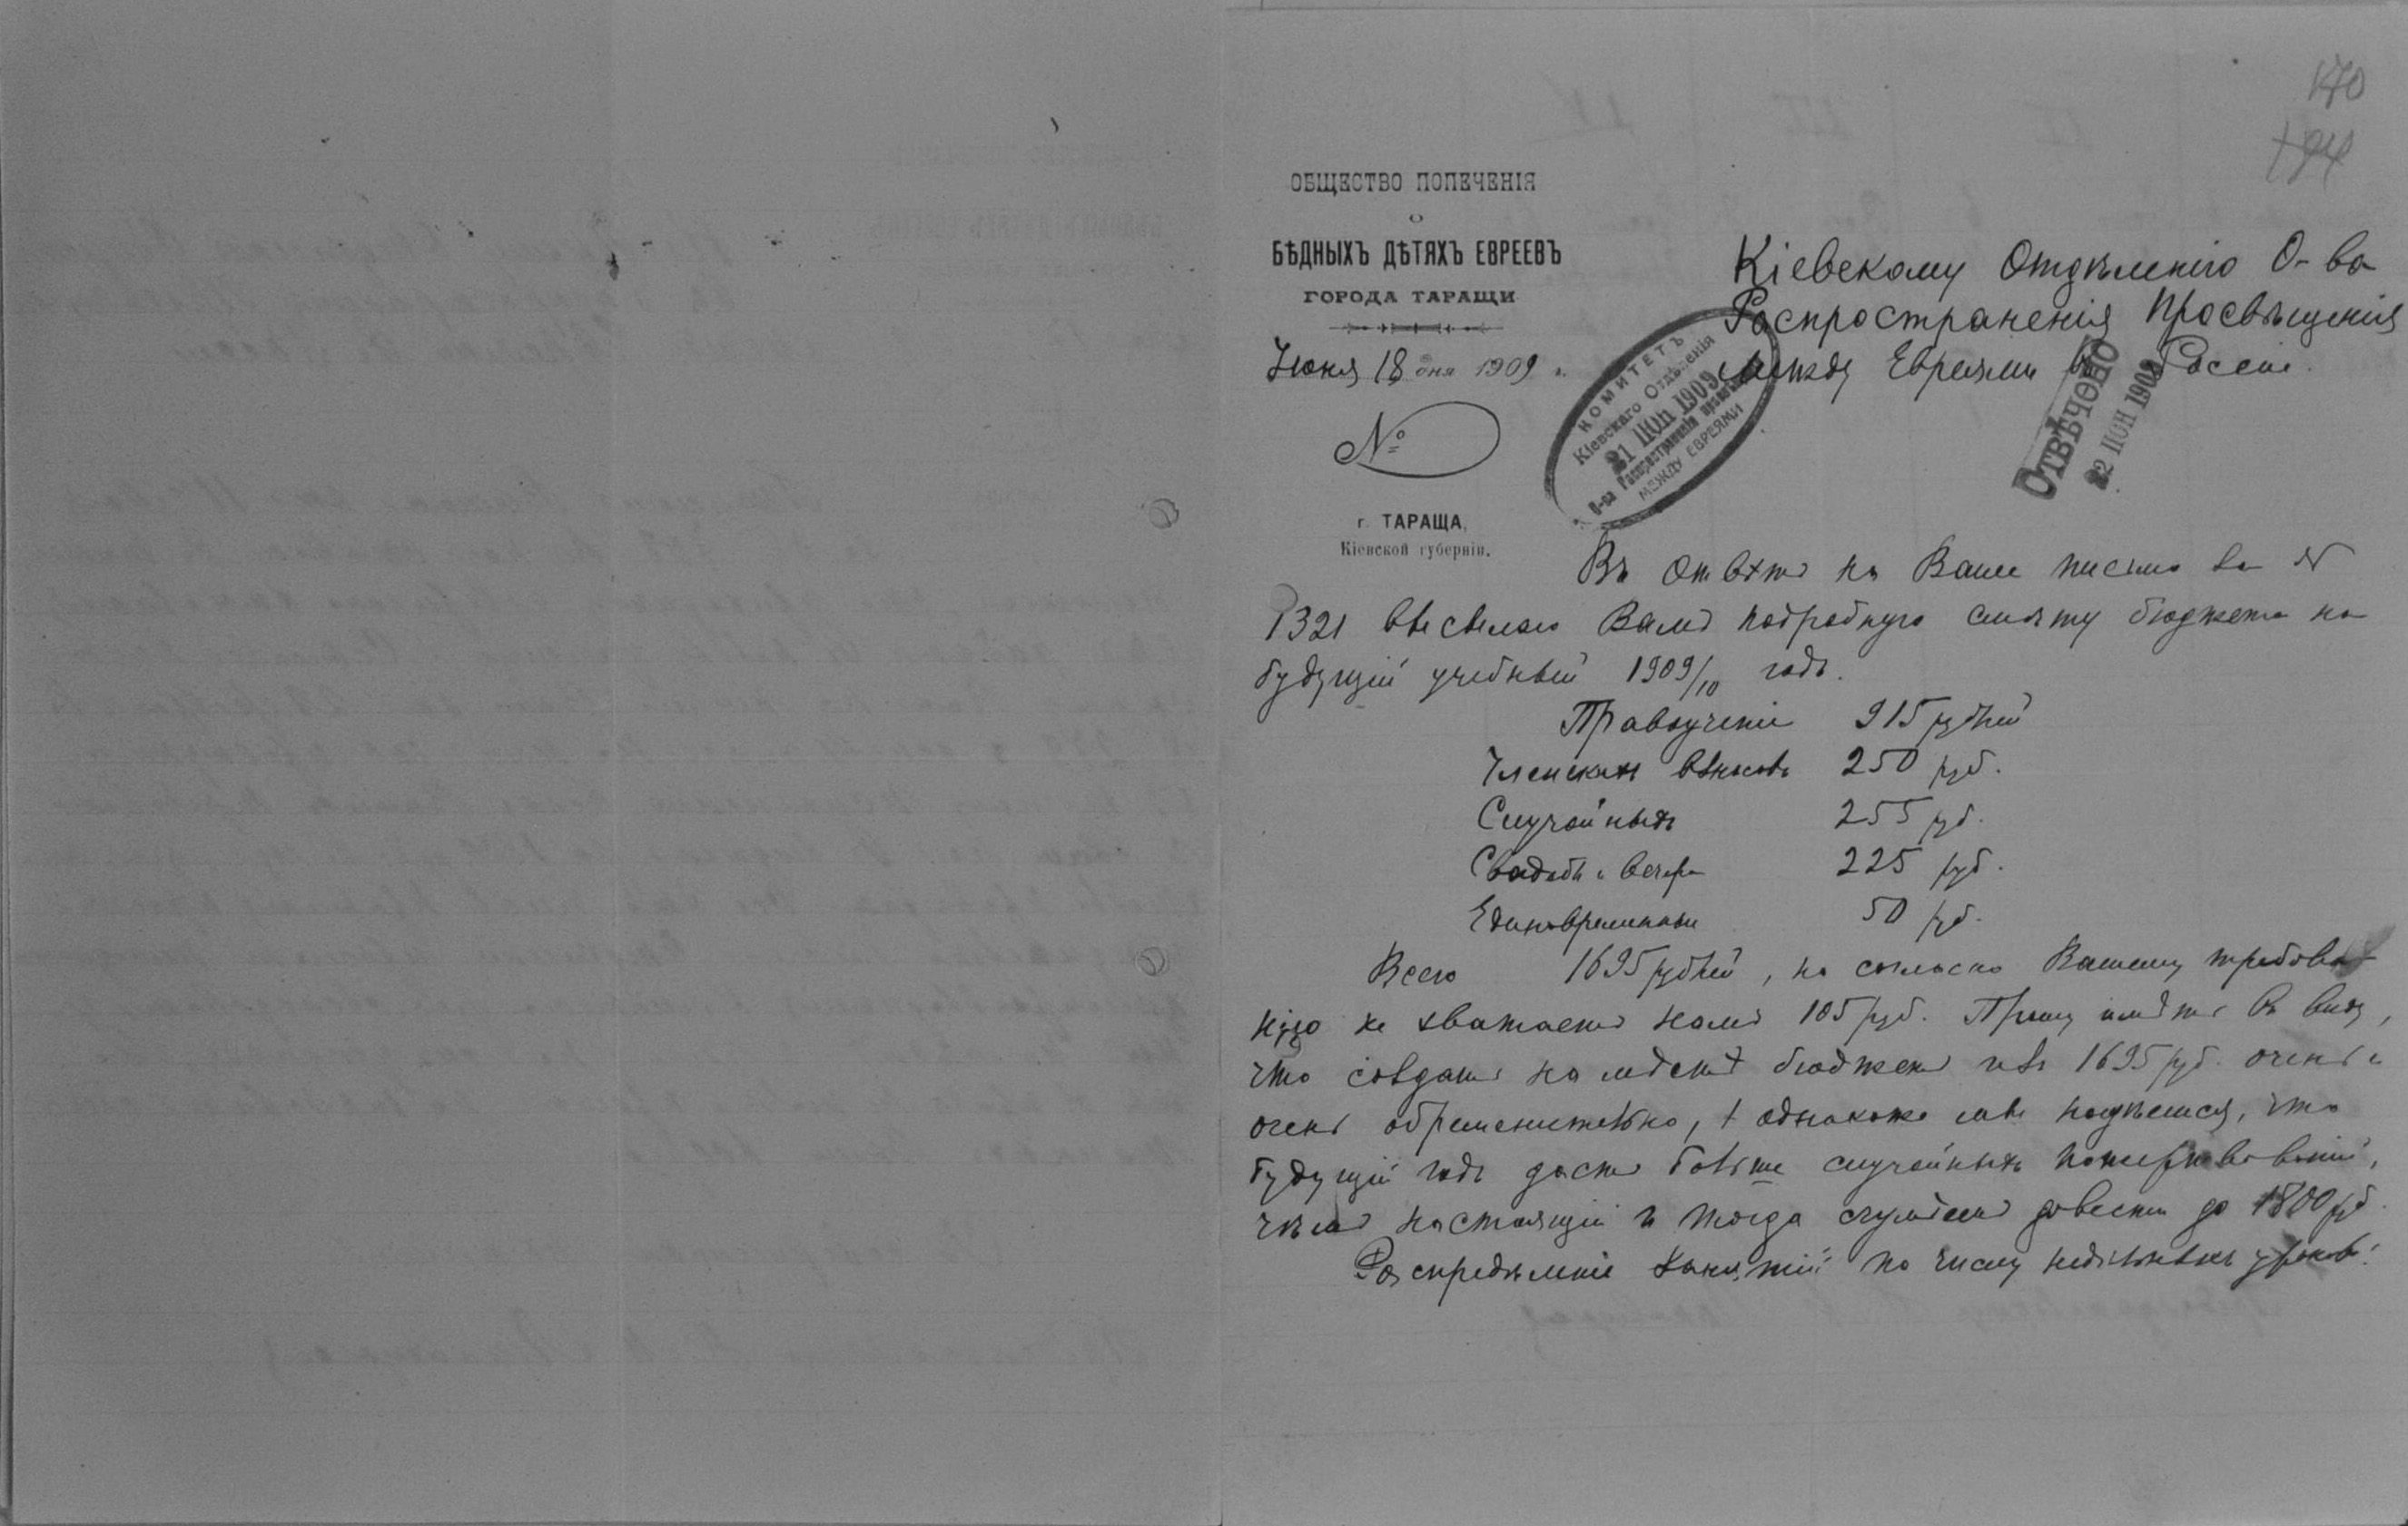 170
194
ОБЩЕСТВО ПОПЕЧЕНІЯ
О
БѢДНЫХЪ ДѢТЯХЪ ЕВРЕЕВЪ
ГОРОДА ТАРАЩИ
Іюня 18 дня 1909 г.
№
г. ТАРАЩА,
Кіевской губерніи.
Кіевскому Отдѣленію О-ва
Распространенія Просвѣщенія
между Евреями въ Россіи.
КОМИТЕТЪ
Кіевскаго Отдѣленія
21 ІЮН 1909
О-ва Распространенія просвѣщ.
МЕЖДУ ЕВРЕЯМИ
ОТВѢЧЕНО
22 ІЮН 1909
Въ отвѣтъ на Ваше письмо за №
1321 высылаю Вамъ подробную смѣту бюджета на
будущій учебный 1909/10 годъ.
Правоученіе 915 рублей
Членскихъ взносовъ 250 руб.
Случайныхъ 255 руб.
Свадьбы и вечера 225 руб.
Единовременныя 50 руб.
Всего 1695 рублей, но согласно Вашему требова-
нію не хватаетъ намъ 105 руб. Прошу имѣть въ виду,
что создать на мѣстѣ бюджетъ изъ 1695 руб. очень и
очень обременительно, однакоже мы надѣемся, что
будущій годъ дастъ больше случайныхъ пожертвованій,
чѣмъ настоящій и тогда сумѣемъ довести до 1800 руб.
Распредѣленіе занятій по числу недѣльныхъ уроковъ: